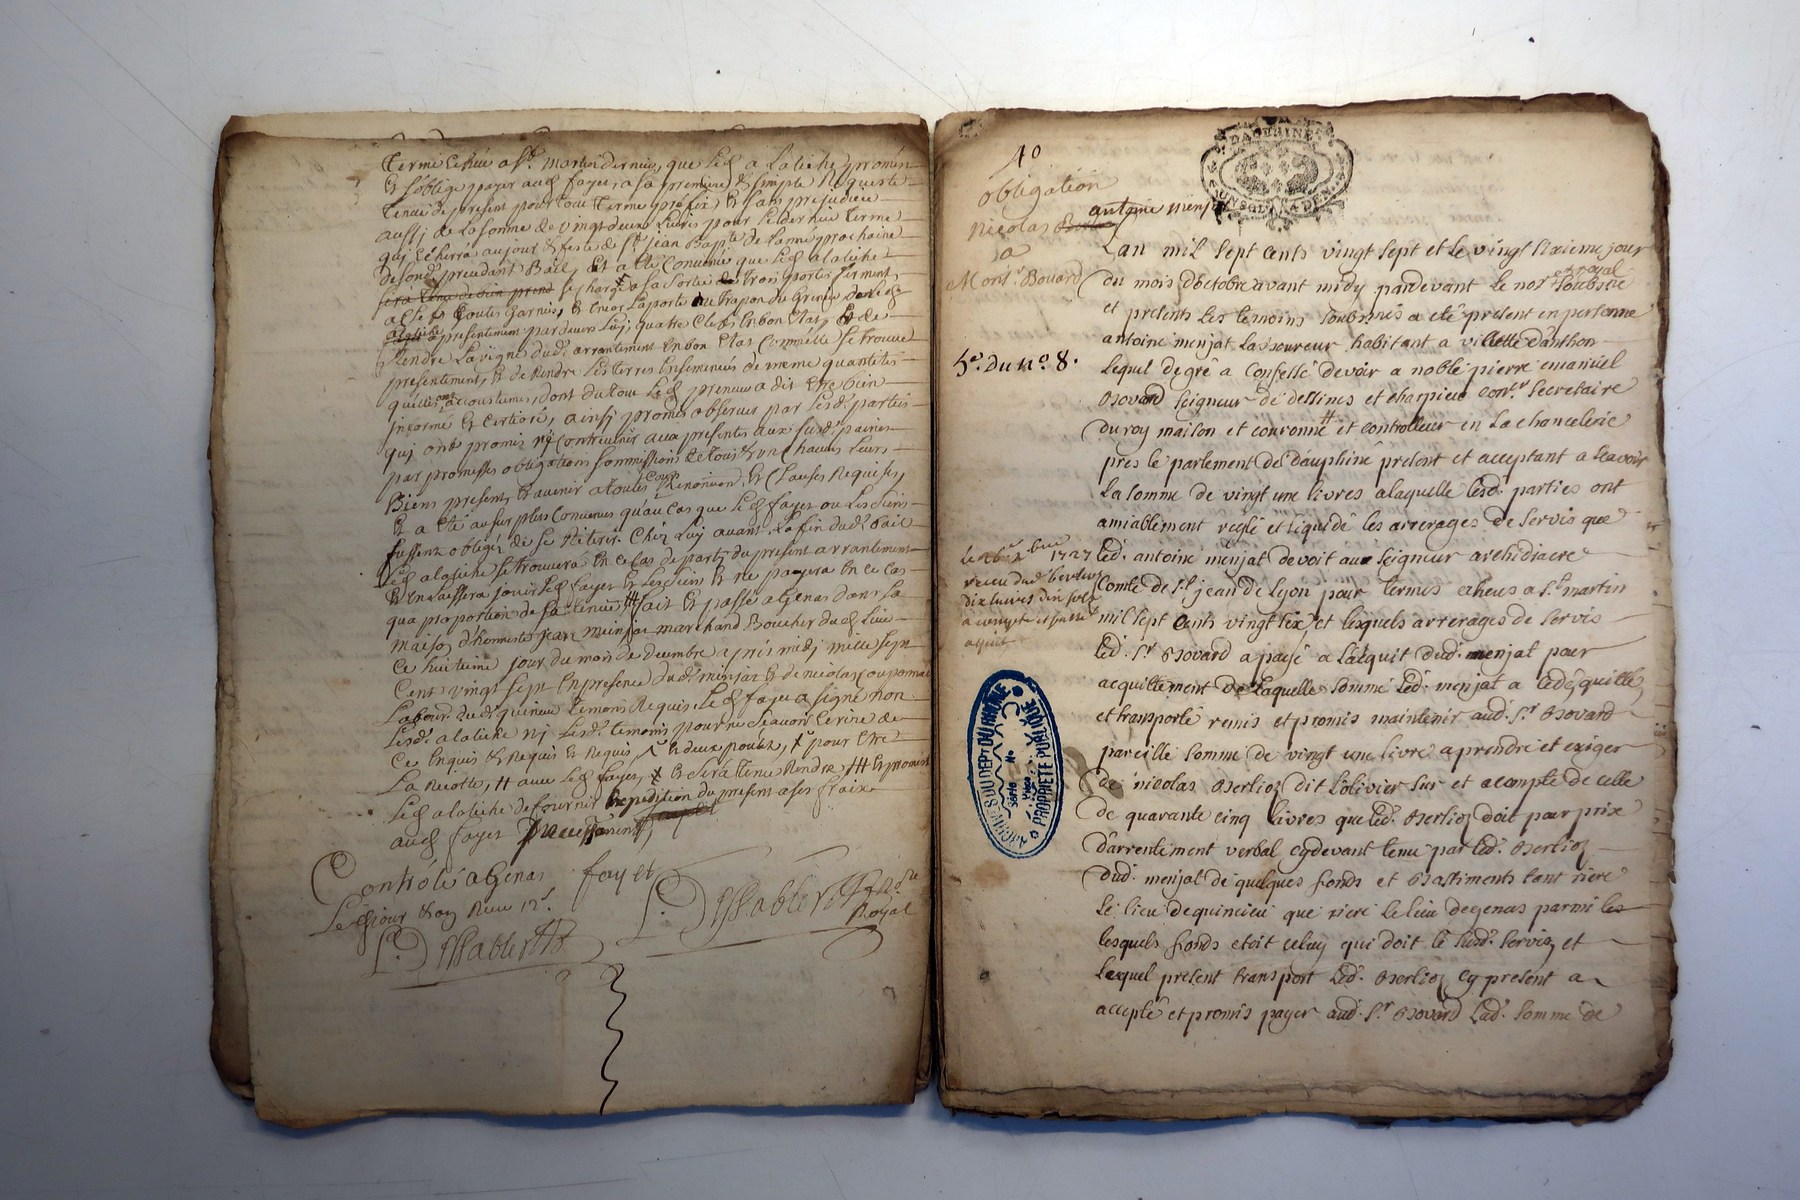 terme echue a St. martin dernier, que led a latiche promet
Et s'oblige payer aud fayet, a sa premiere & simple Requeste
tenüe de present pour tout terme prefix, Et sans prejudice
aussi de la somme de vingt deux Livres pour le dernier terme
qui Echerra au jour & feste de St. jean Bapte de l'anné prochaine
desond. preudant Bail, Et a été Convenüe que led alatiche
se charge a sa sortie de trois portes ferment
a clef toutes garnies, Et encor la porte du trapon du Grenier
presentement pardevers Luy, quatre Clefs En bon Etat, Et de
Rendre La vigne dud. arrantement En bon Etat Comme Elle se trouve
presentement, Et de Rendre Les terres Ensemencés de meme quantités
qu'elles ont accoustumés, dont du tout Led preneur a dit Etre bien
Informé Et Certioré, ainsy promis observer par Lesd. parties
qui ont promis ny Contrevenir aux presentes aux susd. peines
par promesses obligations sommissions de tous & un Chacuns Leurs
Biens present, Et avenir a toutes Cours Renonçion, Et Clauses Requises,
Et a été au surplus Convenües qu'au Cas que Led fayet ou Les siens
fussent obligez de se Retirer Chez Luy avant La fin dud. bail
Led alatiche se trouvera En ce Cas departy du present arrantement
Et En Laissera jouir Led fayet Et Les siens Et ne payera En ce Cas
qua proportion de sa tenüe # fait Et passé a Genas dans La
maison d'honneste Jean minjat marchand Boucher dud Lieu
Ce huitieme jour du mois de decembre apres midi mille sept
Cent vingt sept En presence dud. minjat Et de nicolas
Labour. dud. quincieu temoins Requis Led fayet a signé non
Lesd. alatiche ni Lesd. temoins pour ne sçavoir Ecrire de
Ce Enquis & Requis Et Requis, & deux poulets, x pour Etre
La Recolte, # avec Led fayet, x & sera tenu Rendre, ### Et promis
Led alatiche de fournir Expedition du present a ses fraix
aud fayet
Controlé a Genas fayet
Led jour & an Receu 12s. L. Dessablettes no.re
L. Dessablettes Royal
40
obligation
nicolas antoine menjat
a
Mons.r Bovard
Lan mil sept cents vingt sept et le vingt sixieme jour
du mois d'octobre avant midy pardevant le nore royal soubsigné
et presents les temoins soubsnnés a eté present en personne
antoine menjat Laboureur habitant a villette d'anthon
5e. du no. 8.
Lequel de gré a confessé devoir a noble pierre emanuel
Bovard seigneur de dessines et charpieu cons.er secretaire
du roy maison et couronne # et controlleur en La chancelerie
pres le parlement de dauphiné present et acceptant a sçavoir
La somme de vingt une livres a laquelle Lesd. parties ont
amiablement reglé et liquidé les arrerages de servis que
Led. antoine menjat devoit au seigneur archidiacre
Comte de s.t jean de Lyon pour termes echeus a s.t martin
mil sept cents vingt six, et lesquels arrerages de servis
Led. s.r Bovard a payé a l'acquit dud. menjat pour
acquittement de Laquelle somme Led. menjat a cedé, quitté
et transporté remis et promis maintenir aud. s.r Bovard
pareille somme de vingt une livre a prendre et exiger
de nicolas Berlioz dit l'olivier sur et a compte de celle
de quarante cinq livres que Led. Berlioz doit pour prix
d'arrentement verbal cydevant tenu par Led. Berlioz
dud. menjat de quelques fonds et Bastiments tant riere
Le lieu de quincieu que riere le lieu de genas parmi les
lesquels fonds etoit celuy qui doit le susd. servis, et
Lequel present transport Led. Berlioz cy present a
accepté et promis payer aud. s.r Bovard Lad. somme de
1727
receu dud. berlioz
dix livres dix sols
a compte
ARCHIVES DU DEPt DU RHONE
Série No
PROPRIETE PUBLIQUE